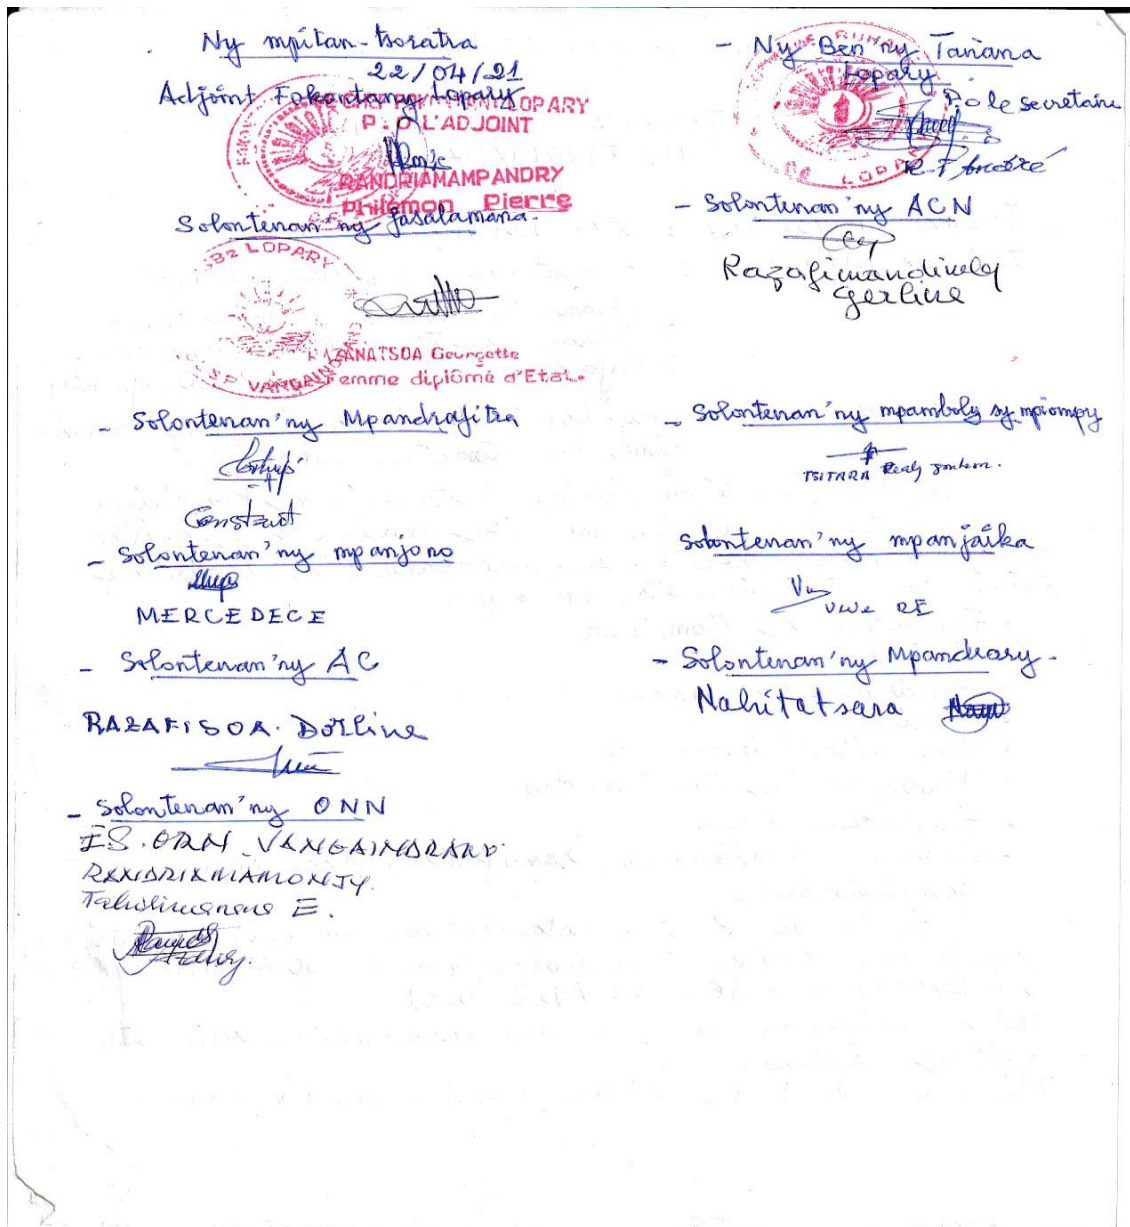 Ny mpitan-tsoratra
22/04/21
Adjoint Fokontany Lopary
LOPARY
P.O L'ADJOINT
RANDRIAMAMPANDRY
Philemon Pierre
Solontenan'ny fasalamana.
CSB2 LOPARY
VANGAINDRANO
RAZANATSOA Georgette
Femme diplômé d'Etat.
- Solontenan'ny Mpandrafitra
Constant
- Solontenan'ny mpanjono
MERCEDECE
- Solontenan'ny AC
RAZAFISOA. Dorline
- Solontenan'ny ONN
IS. ORN VANGAINDRANO.
RANDRIAMAMONJY
E.
- Ny Ben'ny Tanana
Lopary
P.o le secretaire
LOPARY
R F André
- Solontenan'ny ACN
Razafimandimby
Gerline
- Solontenan'ny mpamboly sy mpiompy
TSITARA
Solontenan'ny mpanjaika
- Solontenan'ny Mpandrary -
Nahitatsara